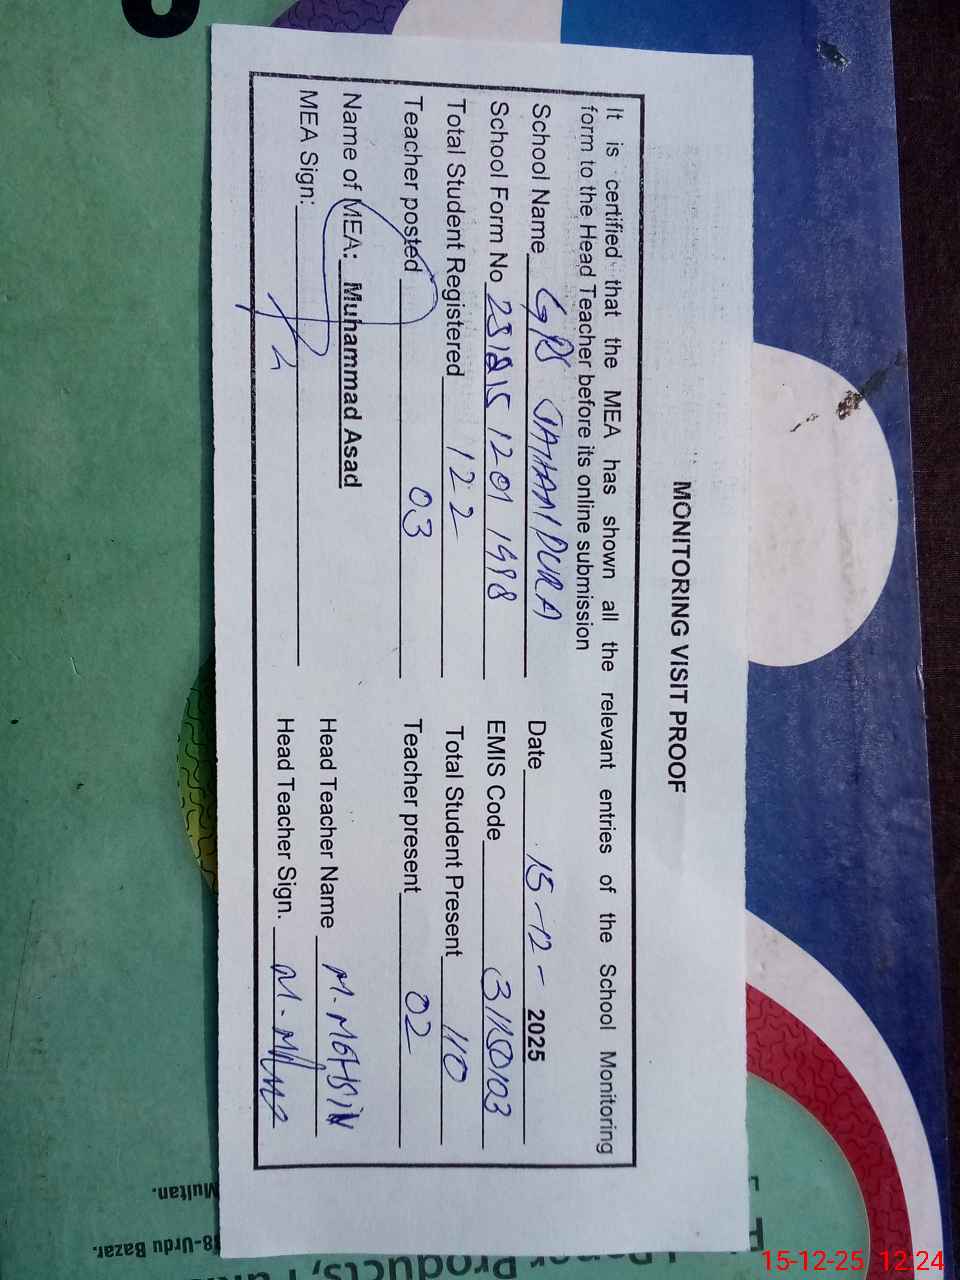 MONITORING VISIT PROOF
It is certified that the MEA has shown all the relevant entries of the School Monitoring
form to the Head Teacher before its online submission
School Name GPS JAHANPURA Date 15-12- 2025
School Form No 1201 1998 EMIS Code
Total Student Registered 122 Total Student Present 110
Teacher posted 03 Teacher present 02
Name of MEA: Muhammad Asad Head Teacher Name M. MOHSIN
MEA Sign: Head Teacher Sign.
Multan.
8-Urdu Bazar.
Paper Products,
15-12-25 12:24